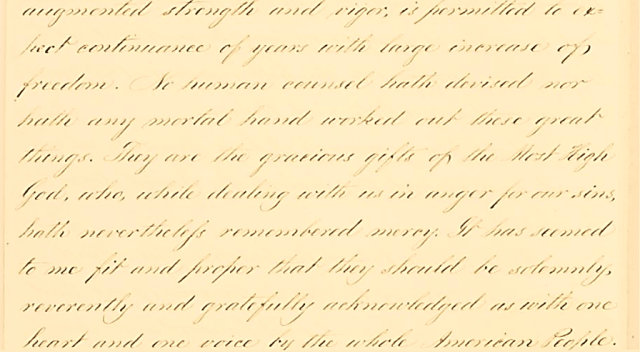 augmented strength and vigor, is permitted to ex=
pect continuance of years with large increase of
freedom. No human counsel hath devised nor
hath any mortal hand worked out these great
things. They are the gracious gifts of the Most High
God, who, while dealing with us in anger for our sins,
hath nevertheleſs remembered mercy. It has seemed
to me fit and proper that they should be solemnly,
reverently and gratefully acknowledged as with one
heart and one voice by the whole American People.